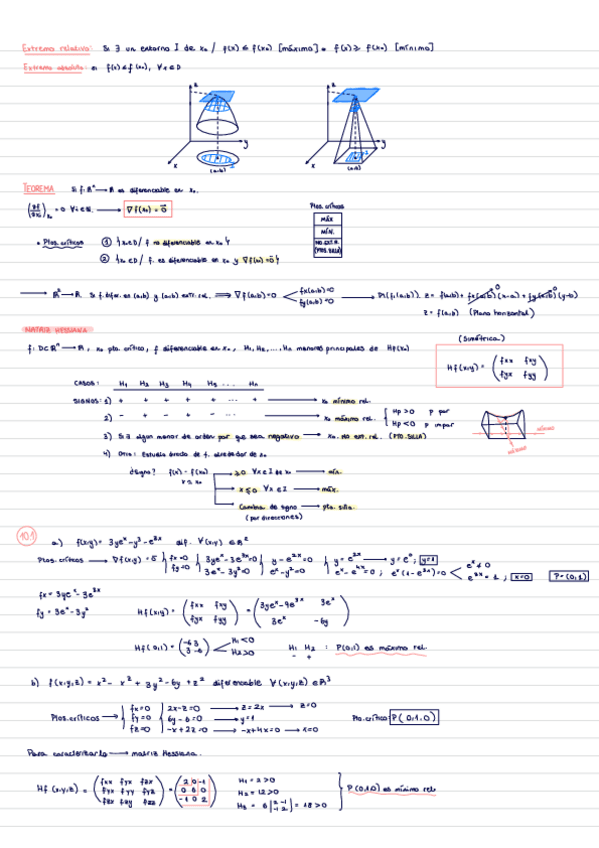 Extremo relativo: Si ∃ un entorno I de x₀ / f(x) ≤ f(x₀) [máximo] o f(x) ≥ f(x₀) [mínimo]
Extremo absoluto: si f(x) ≤ f(x₀), ∀x∈D
z
y
x
(a,b)
z
y
x
(a,b)
TEOREMA Si f: ℝⁿ → ℝ es diferenciable en x₀
(∂f/∂xᵢ)x₀ = 0 ∀i∈ℕ. → ∇f(x₀) = 0⃗
Ptos. críticos
MÁX
MÍN.
NO EXT.R. (PTOS. SILLA)
• Ptos. críticos ① {x₀∈D / f no diferenciable en x₀}
② {x₀∈D / f. es diferenciable en x₀ y ∇f(x₀)=0⃗}
→ ℝ² → ℝ Si f. difer. en (a,b) y (a,b) extr. rel. ⇒ ∇f(a,b)=0 fx(a,b)=0 fy(a,b)=0 → z = f(a,b) + fx(a,b)(x-a) + fy(a,b)(y-b)
z = f(a,b) (Plano horizontal)
MATRIZ HESSIANA
(Simétrica)
f: D⊂ℝⁿ → ℝ, x₀ pto. crítico, f diferenciable en x₀, H₁, H₂, ..., Hₙ menores principales de Hf(x₀)
Hf(x,y) = (fxx fxy fyx fyy)
CASOS: H₁ H₂ H₃ H₄ H₅ ... Hₙ
SIGNOS: 1) + + + + + ... + → x₀ mínimo rel.
2) - + - + - ... → x₀ máximo rel. Hp>0 p par Hp<0 p impar
3) Si ∃ algún menor de orden par que sea negativo → x₀ no ext. rel. (PTO. SILLA)
4) Otro: Estudia directo de f. alrededor de x₀
¿Signo? f(x) - f(x₀)
≥0 ∀x∈I de x₀ → mín.
≤0 ∀x∈I → máx.
Cambia de signo → pto. silla.
(por direcciones)
101
a) f(x,y) = 3yeˣ - y³ - e³ˣ dif. ∀(x,y)∈ℝ²
Ptos. críticos → ∇f(x,y) = 0⃗ fx=0 fy=0 3yeˣ - 3e³ˣ=0 3eˣ - 3y²=0 y - e²ˣ=0 eˣ - y²=0 y = e²ˣ → y=e⁰; y=1 eˣ - e⁴ˣ=0; eˣ(1-e³ˣ)=0 eˣ≠0 e³ˣ=1; x=0 P=(0,1)
fx = 3yeˣ - 3e³ˣ
fy = 3eˣ - 3y²
Hf(x,y) = (fxx fxy fyx fyy) = (3yeˣ - 9e³ˣ 3eˣ 3eˣ -6y)
Hf(0,1) = (-6 3 3 -6) H₁<0 H₂>0 H₁ H₂ : P(0,1) es máximo rel.
- +
b) f(x,y,z) = x² - xz + 3y² - 6y + z² diferenciable ∀(x,y,z)∈ℝ³
Ptos. críticos → fx=0 fy=0 fz=0 2x-z=0 → z=2x → z=0 6y-6=0 → y=1 -x+2z=0 → -x+4x=0 → x=0 Pto. crítico: P(0,1,0)
Para caracterizarlo → matriz Hessiana.
Hf(x,y,z) = (fxx fyx fzx fyx fyy fyz fzx fzy fzz) = (2 0 -1 0 6 0 -1 0 2)
H₁ = 2>0
H₂ = 12>0
H₃ = 6|2 -1 -1 2| = 18>0
P(0,1,0) es mínimo rel.